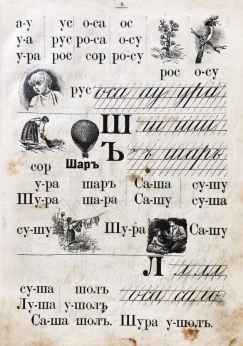 5.
а-у ус о-са ос
у-а рус ро-са о-су
у-ра рос сор ро-су
рос о-су
рус оса ау ура
Ш ш ши
Ъ ъ шаръ
сор Шаръ
у-ра шаръ Са-ша су-шу
Шу-ра ша-ра Са-шу су-ша
су-шу Шу-ра Са-шу
Л л л л
су-ша шолъ оса сало
Лу-ша у-шолъ
Са-ша шолъ. Шура у-шолъ.